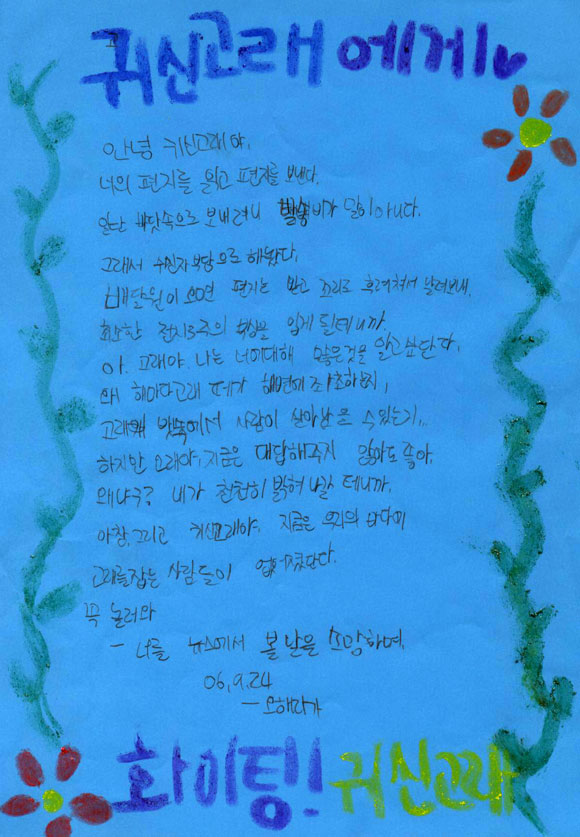 귀신고래에게
안녕 귀신고래야.
너의 편지를 읽고 편지를 보낸다.
일단 바닷속으로 보내려니 발송비가 말이 아니다.
그래서 수신자 부담으로 해놨다.
배달원이 오면 편지는 받고 꼬리로 후려쳐서 날려보내.
최소한 전치3주의 부상을 입게 될테니까.
아. 고래야. 나는 너에대해 많은것을 알고싶단다.
왜 해마다고래 떼가 해변에 좌초하는지,
고래 뱃속에서 사람이 살아남을 수 있는지..
하지만 고래야. 지금은 대답해주지 않아도 좋아.
왜냐구? 내가 천천히 밝혀 나갈 테니까.
아참, 그리고 귀신고래야. 지금은 우리의 바다에
고래를잡는 사람들이 없어졌단다.
꼭 놀러와
- 너를 뉴스에서 볼 날을 소망하며.
06.9.24
-오해따가
화이팅!! 귀신고래